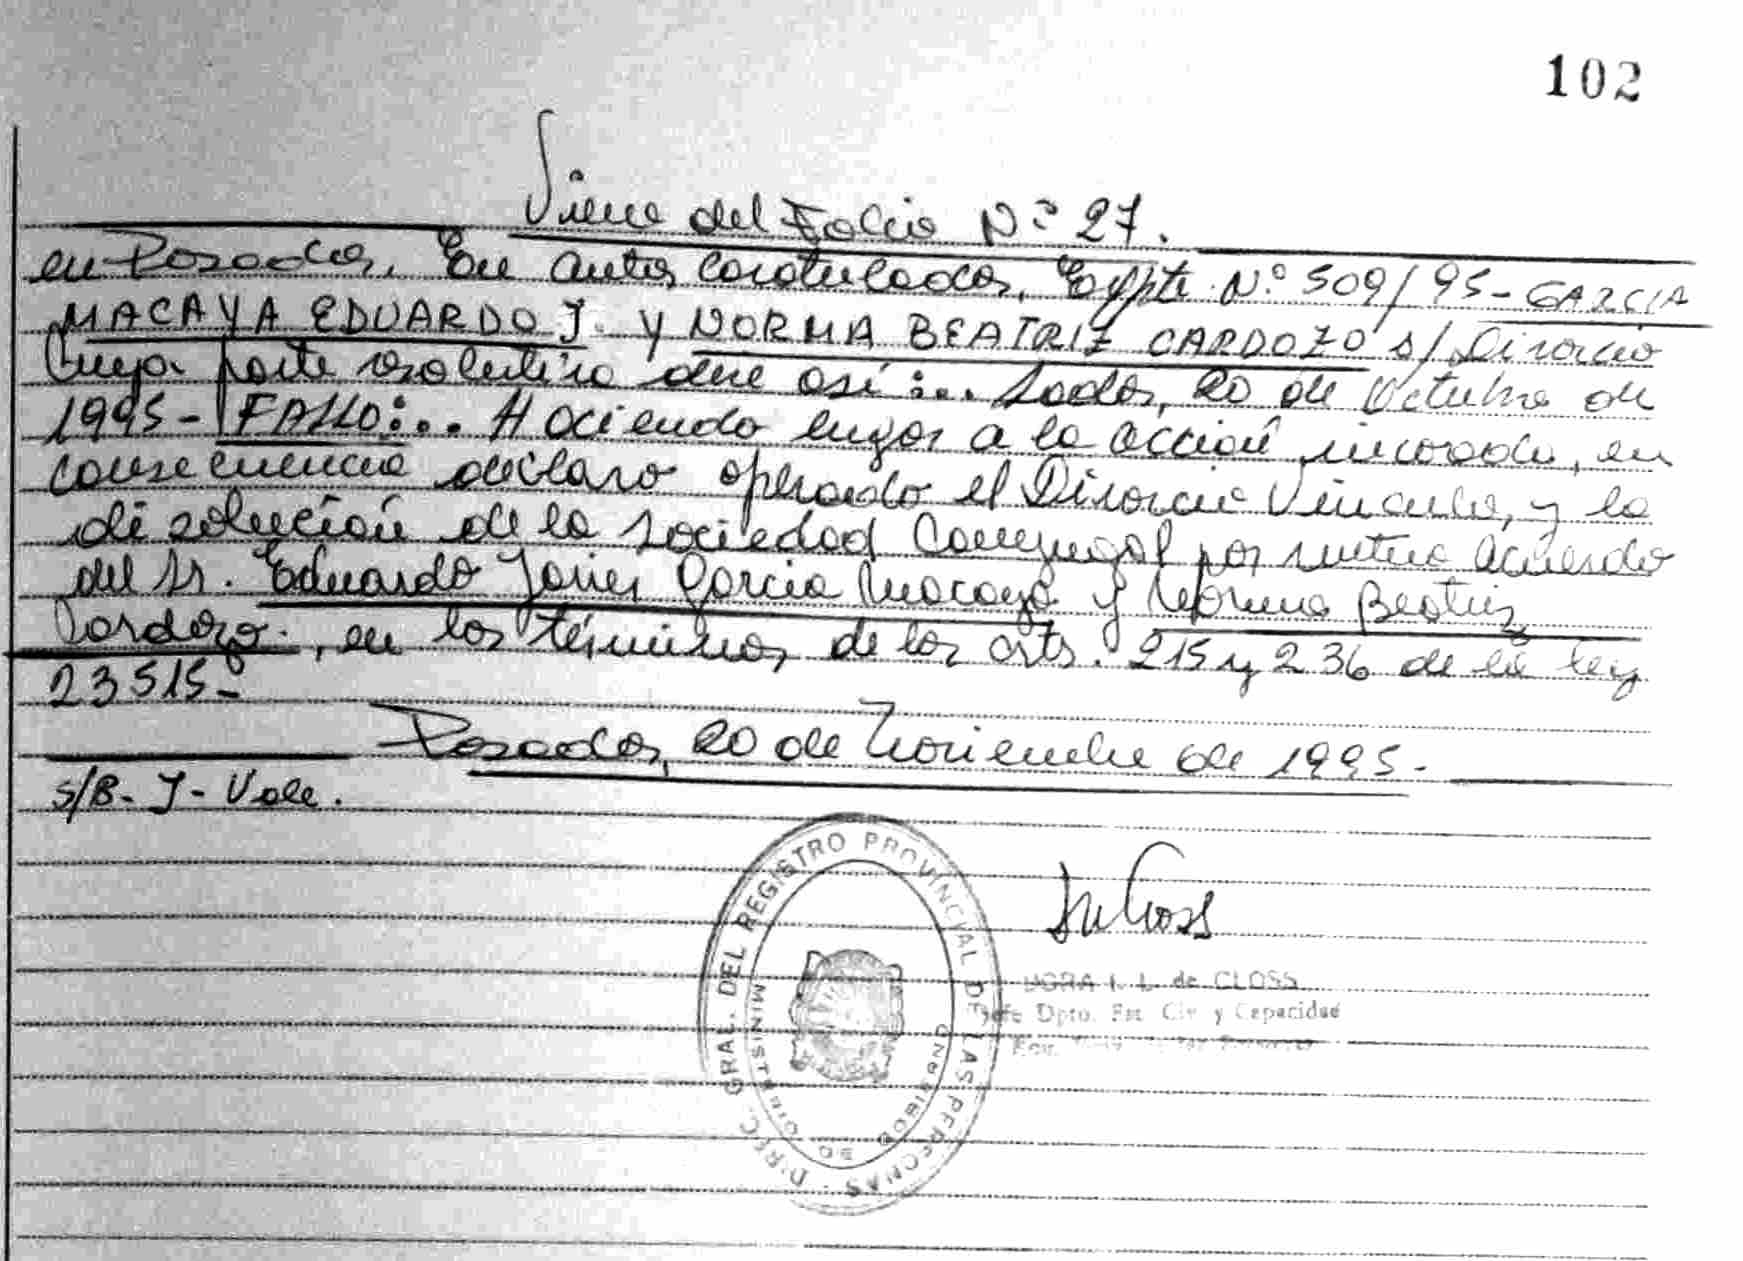 102
Viene del Folio Nº 27.
en Posadas, En autos caratulados, Expte Nº 509/95- GARCIA
MACAYA EDUARDO J. y NORMA BEATRIZ CARDOZO s/ Divorcio
Cuya parte resolutiva dice asi:.. Posadas, 20 de Octubre de
1995- FALLO:.. Haciendo lugar a la acción incoada, en
consecuencia declaro operado el Divorcio Vincular, y la
disolución de la sociedad Conyugal por mutuo acuerdo
del Sr. Eduardo Javier Garcia Macaya y Norma Beatriz
Cardozo, en los términos de los arts. 215 y 236 de la ley
23515-
Posadas, 20 de Noviembre de 1995-
s/B- J- Vale.
DIREC. GRAL. DEL REGISTRO PROVINCIAL DE LAS PERSONAS
MINISTERIO DE GOBIERNO
DORA I. L. de CLOSS
Jefe Dpto. Est. Civ. y Capacidad